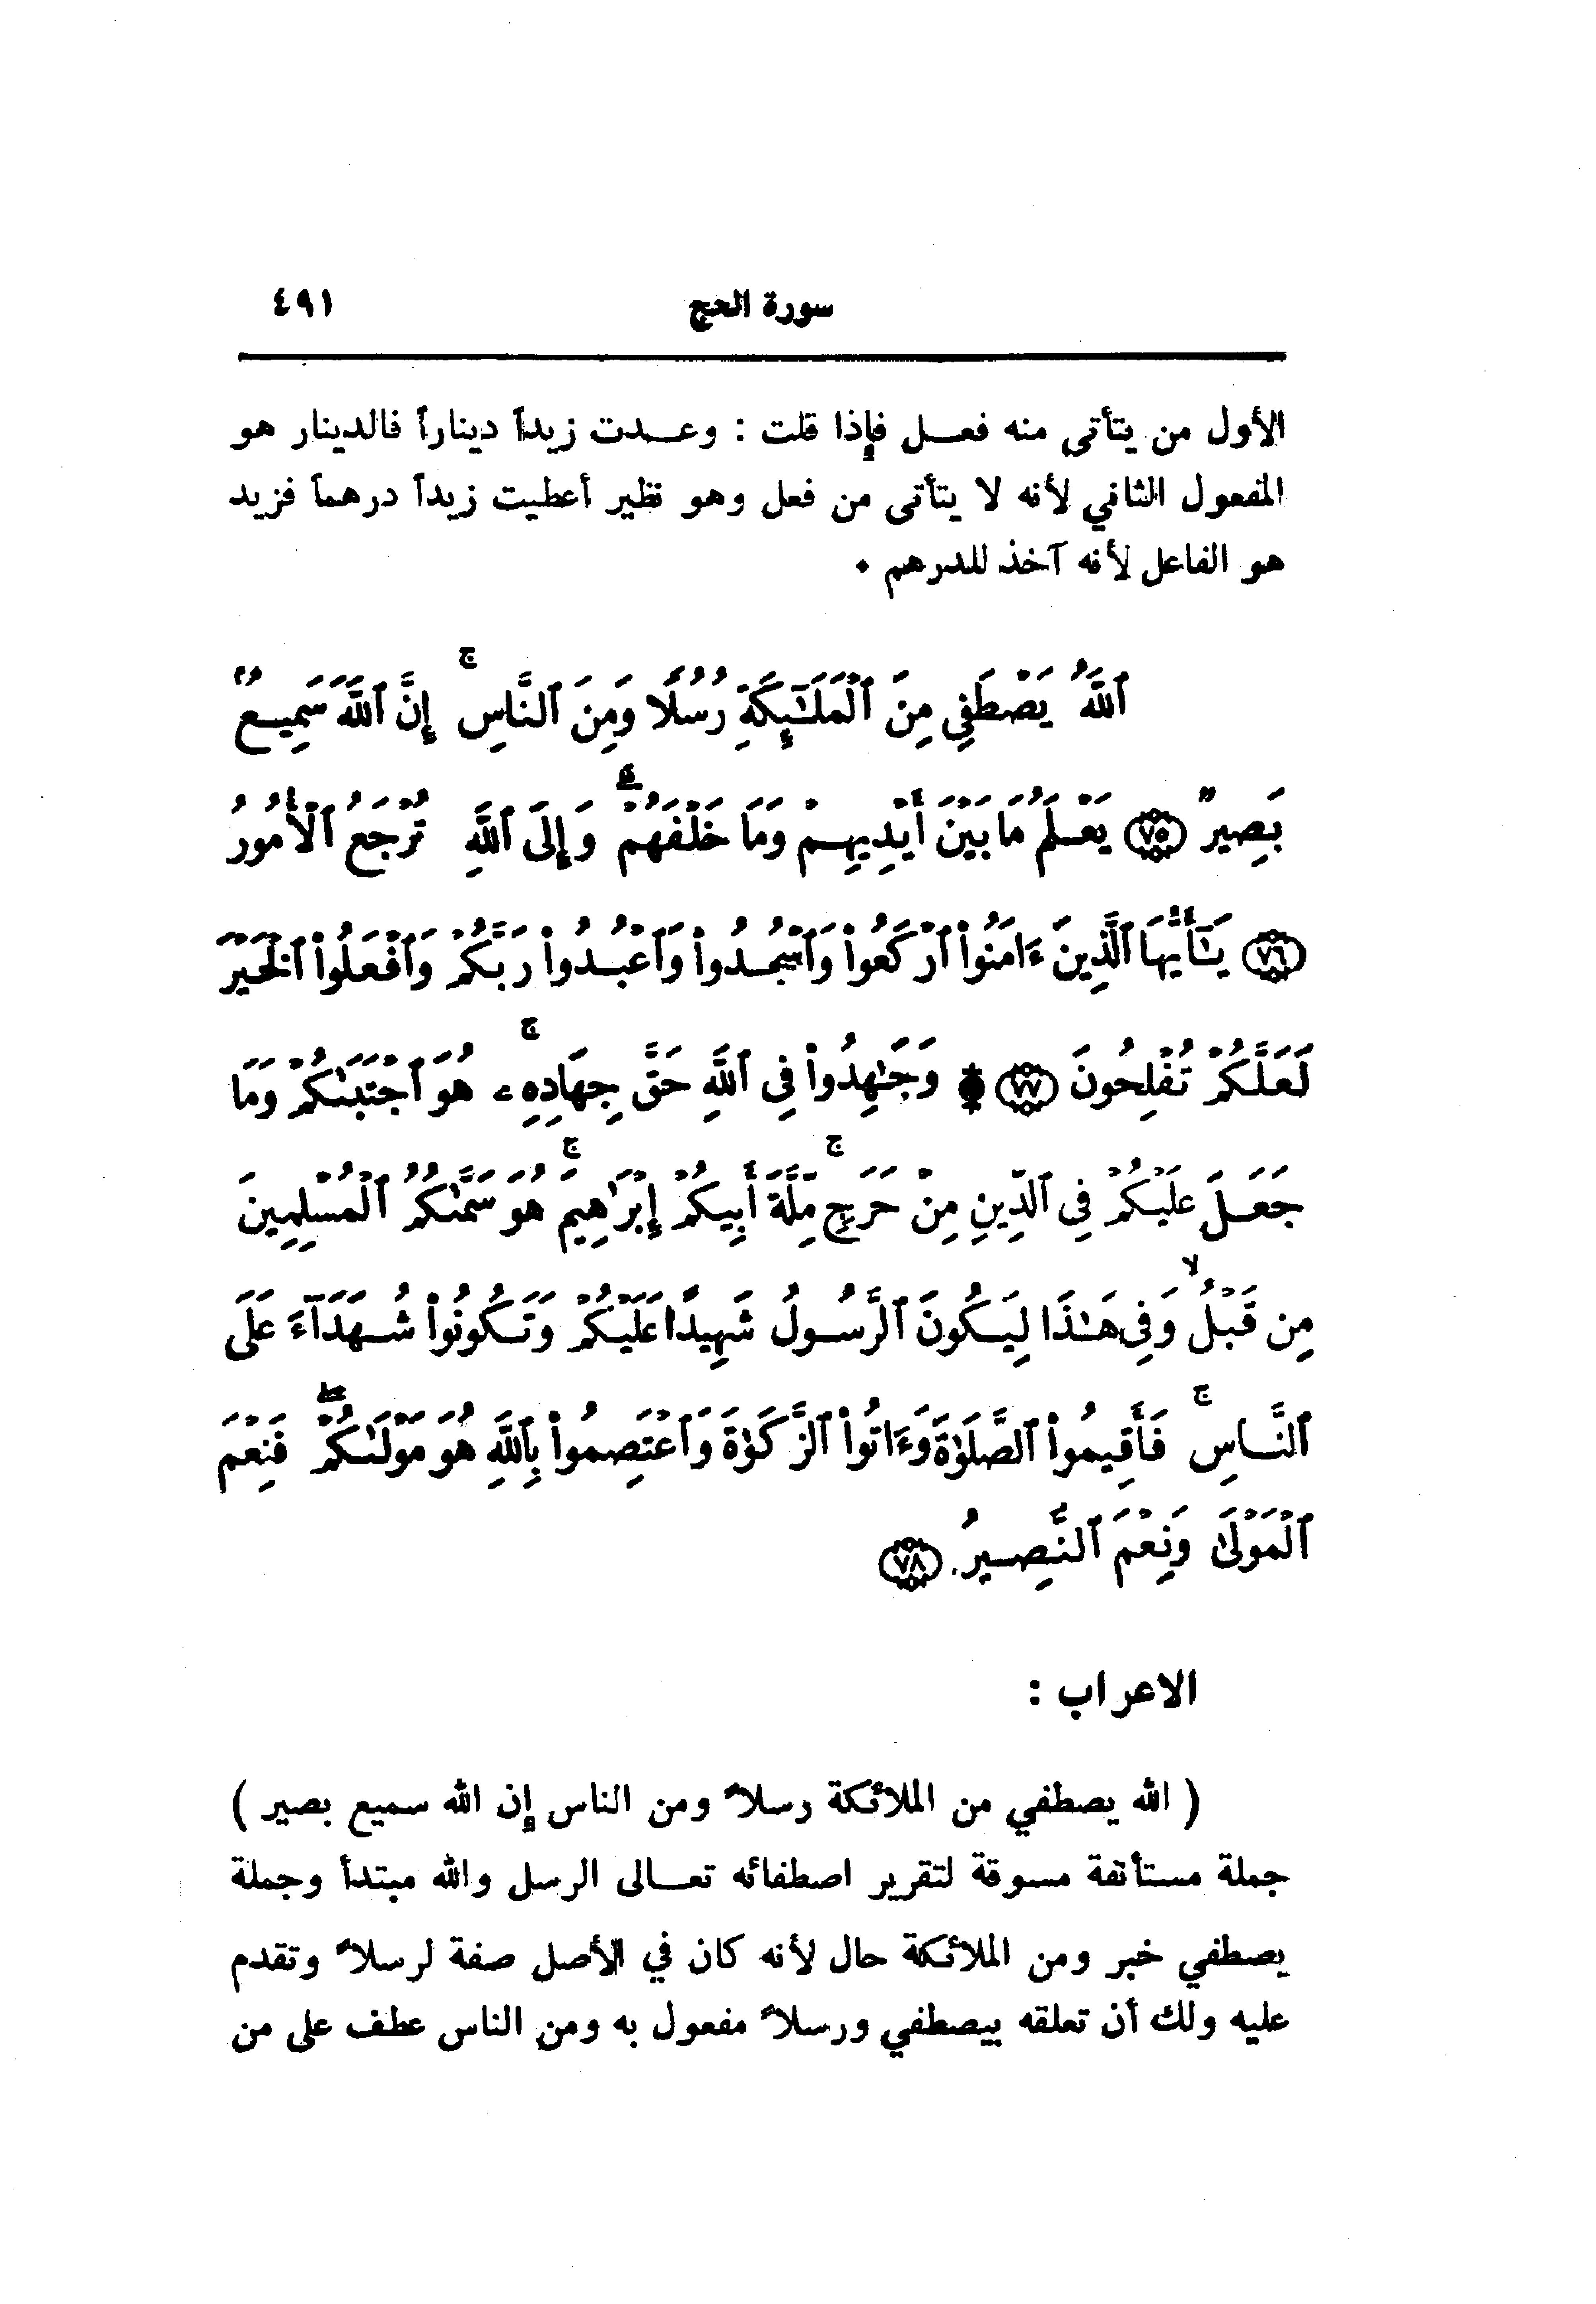 سورة الحج ٤٩١
الأول من يتأتى منه فعـــل فإذا قلت : وعـــدت زيداً ديناراً فالدينار هو
المفعول الثاني لأنه لا يتأتى من فعل وهو نظير أعطيت زيداً درهماً فزيد
هو الفاعل لأنه آخذ للدرهم .
ٱللَّهُ يَصْطَفِى مِنَ ٱلْمَلَـٰٓئِكَةِ رُسُلًا وَمِنَ ٱلنَّاسِ ۚ إِنَّ ٱللَّهَ سَمِيعٌۢ
بَصِيرٌ ﴿٧٥﴾ يَعْلَمُ مَا بَيْنَ أَيْدِيهِمْ وَمَا خَلْفَهُمْ ۗ وَإِلَى ٱللَّهِ تُرْجَعُ ٱلْأُمُورُ
﴿٧٦﴾ يَـٰٓأَيُّهَا ٱلَّذِينَ ءَامَنُوا۟ ٱرْكَعُوا۟ وَٱسْجُدُوا۟ وَٱعْبُدُوا۟ رَبَّكُمْ وَٱفْعَلُوا۟ ٱلْخَيْرَ
لَعَلَّكُمْ تُفْلِحُونَ ﴿٧٧﴾ ۞ وَجَـٰهِدُوا۟ فِى ٱللَّهِ حَقَّ جِهَادِهِۦ ۚ هُوَ ٱجْتَبَىٰكُمْ وَمَا
جَعَلَ عَلَيْكُمْ فِى ٱلدِّينِ مِنْ حَرَجٍ ۚ مِّلَّةَ أَبِيكُمْ إِبْرَٰهِيمَ ۚ هُوَ سَمَّىٰكُمُ ٱلْمُسْلِمِينَ
مِن قَبْلُ ۙ وَفِى هَـٰذَا لِيَكُونَ ٱلرَّسُولُ شَهِيدًا عَلَيْكُمْ وَتَكُونُوا۟ شُهَدَآءَ عَلَى
ٱلنَّاسِ ۚ فَأَقِيمُوا۟ ٱلصَّلَوٰةَ وَءَاتُوا۟ ٱلزَّكَوٰةَ وَٱعْتَصِمُوا۟ بِٱللَّهِ هُوَ مَوْلَىٰكُمْ ۖ فَنِعْمَ
ٱلْمَوْلَىٰ وَنِعْمَ ٱلنَّصِيرُ ﴿٧٨﴾
الاعراب :
( الله يصطفي من الملائكة رسلاً ومن الناس إن الله سميع بصير )
جملة مستأنفة مسوقة لتقرير اصطفائه تعـــالى الرسل والله مبتدأ وجملة
يصطفي خبر ومن الملائكة حال لأنه كان في الأصل صفة لرسلاً وتقدم
عليه ولك أن تعلقه بيصطفي ورسلاً مفعول به ومن الناس عطف على من